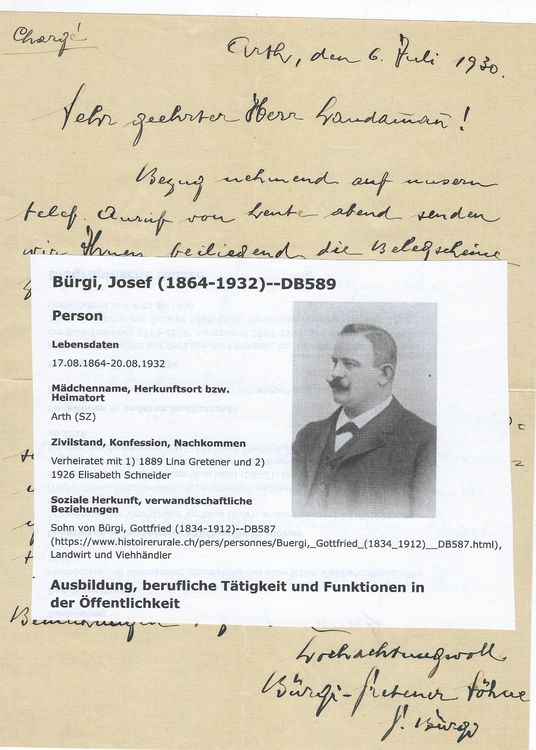 Chargé
Arth, den 6. Juli 1930.
Sehr geehrter Herr Landaman!
Bezug nehmend auf unsern
telef. Anruf von heute abend senden
wir Ihnen beiliegend die Belegscheine
Bürgi, Josef (1864-1932)--DB589
Person
Lebensdaten
17.08.1864-20.08.1932
Mädchenname, Herkunftsort bzw.
Heimatort
Arth (SZ)
Zivilstand, Konfession, Nachkommen
Verheiratet mit 1) 1889 Lina Gretener und 2)
1926 Elisabeth Schneider
Soziale Herkunft, verwandtschaftliche
Beziehungen
Sohn von Bürgi, Gottfried (1834-1912)--DB587
(https://www.histoirerurale.ch/pers/personnes/Buergi,_Gottfried_(1834_1912)__DB587.html),
Landwirt und Viehhändler
Ausbildung, berufliche Tätigkeit und Funktionen in
der Öffentlichkeit
Hochachtungsvoll
Bürgi-Gretener Söhne
J. Bürgi